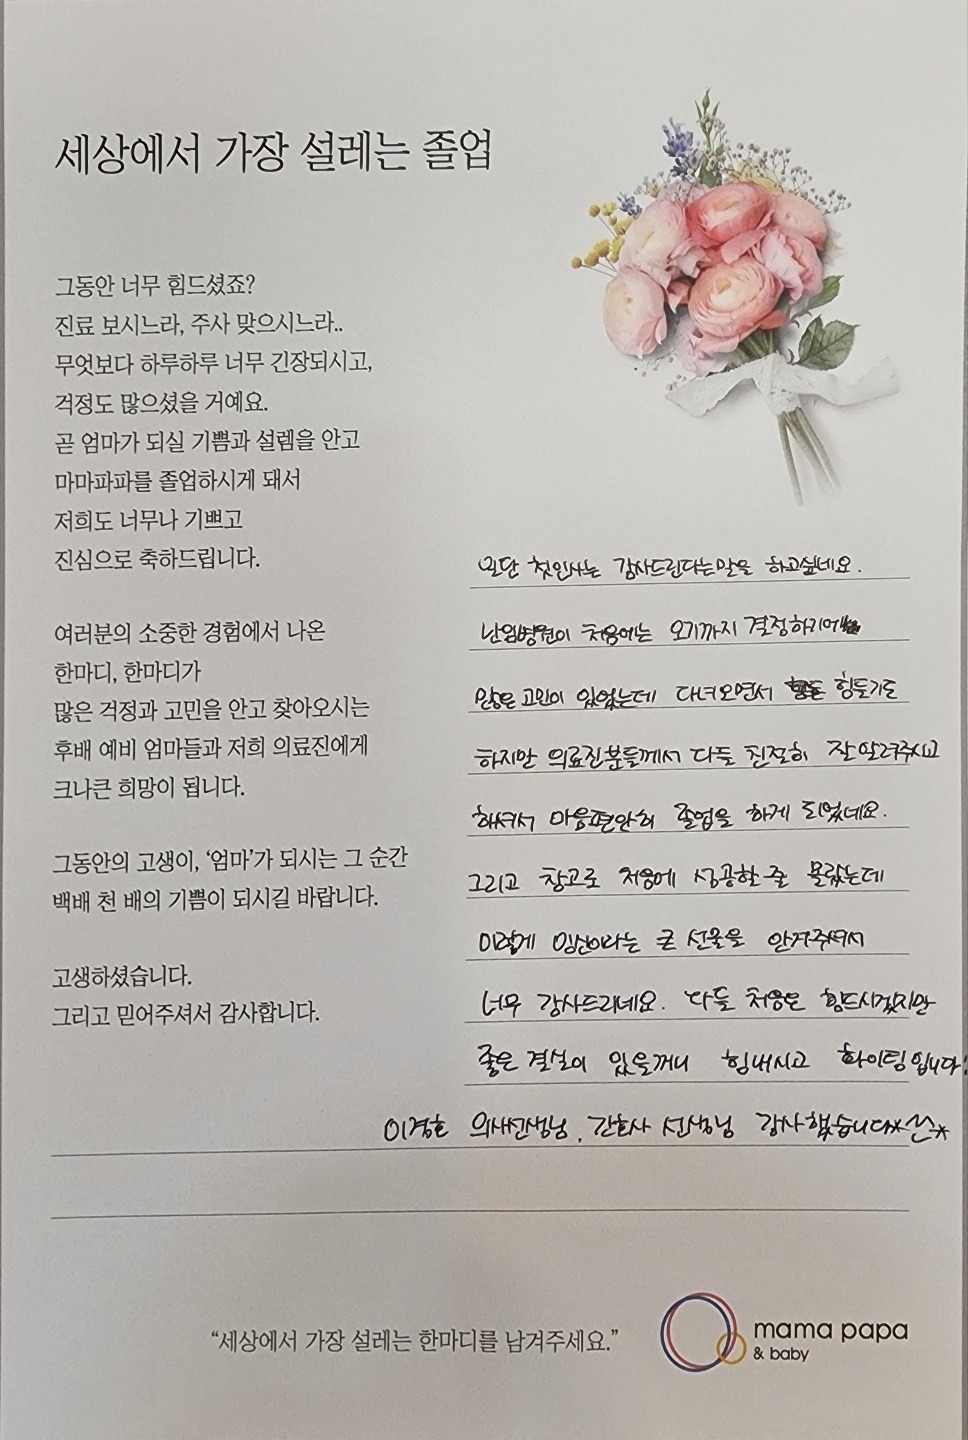 세상에서 가장 설레는 졸업
그동안 너무 힘드셨죠?
진료 보시느라, 주사 맞으시느라..
무엇보다 하루하루 너무 긴장되시고,
걱정도 많으셨을 거예요.
곧 엄마가 되실 기쁨과 설렘을 안고
마마파파를 졸업하시게 돼서
저희도 너무나 기쁘고
진심으로 축하드립니다.
여러분의 소중한 경험에서 나온
한마디, 한마디가
많은 걱정과 고민을 안고 찾아오시는
후배 예비 엄마들과 저희 의료진에게
크나큰 희망이 됩니다.
그동안의 고생이, ‘엄마’가 되시는 그 순간
백배 천 배의 기쁨이 되시길 바랍니다.
고생하셨습니다.
그리고 믿어주셔서 감사합니다.
일단 첫인사는 감사드린다는말을 하고싶네요.
난임병원이 처음에는 오기까지 결정하기에
많은 고민이 있었는데 다녀오면서 힘들기도
하지만 의료진분들께서 다들 친절히 잘 알려주시고
하셔서 마음편안히 졸업을 하게 되었네요.
그리고 참고로 처음에 성공할 줄 몰랐는데
이렇게 임신이라는 큰 선물을 안겨주셔서
너무 감사드리네요. 다들 처음은 힘드시겠지만
좋은 결실이 있을꺼니 힘내시고 화이팅입니다!
이경호 의사선생님, 간호사 선생님 감사했습니다*^^*
“세상에서 가장 설레는 한마디를 남겨주세요.”
mama papa
& baby